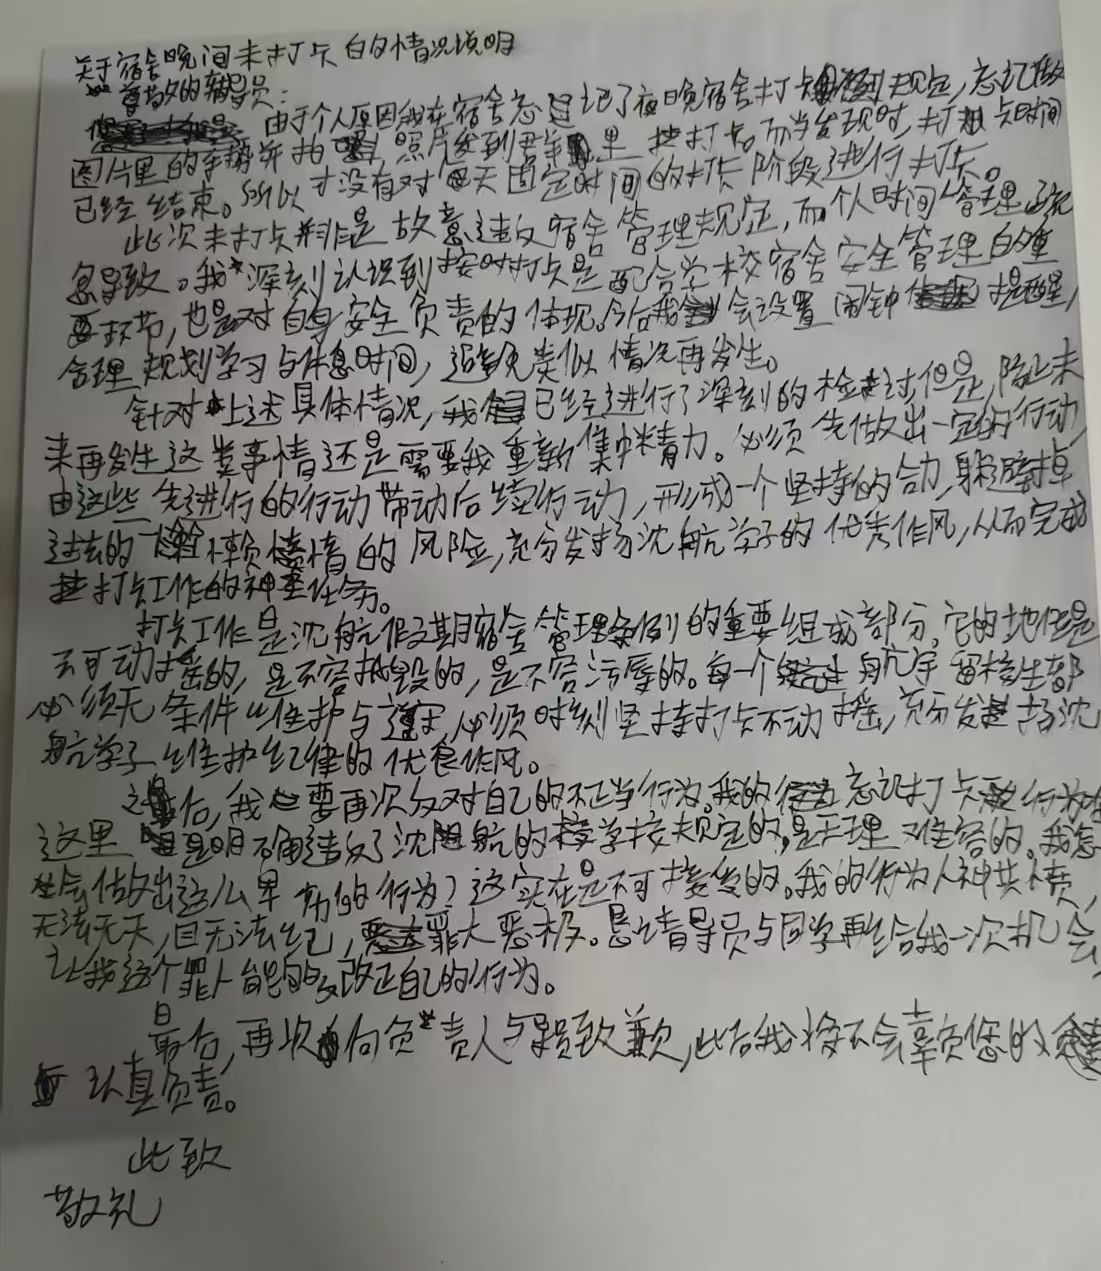 关于宿舍晚间未打卡的情况说明
尊敬的辅导员:
由于个人原因我在宿舍忘记了夜晚宿舍打卡规定,忘记做
图片里的手势并拍照片发到群里打卡而当发现时,打卡时间
已经结束。所以才没有对每天固定时间的打卡阶段进行打卡。
此次未打卡并非是故意违反宿舍管理规定,而个人时间管理疏
忽导致。我深刻认识到按时打卡是配合学校宿舍安全管理的重
要环节,也是对自身安全负责的体现。今后我会设置闹钟提醒,
合理规划学习与休息时间,避免类似情况再发生。
针对上述具体情况,我已经进行了深刻的检讨,但是,防止未
来再发生这类事情还是需要我重新集中精力。必须先做出一定的行动,
由这些先进行的行动带动后续行动,形成一个坚持的合力,躲避掉
过去的懒惰的风险,充分发扬沈航学子的优秀作风,从而完成
打卡工作的神圣任务。
打卡工作是沈航假期宿舍管理条例的重要组成部分。它的地位是
不可动摇的,是不容诋毁的,是不容污辱的。每一个航宇留校生都
必须无条件维护与遵守,必须时刻坚持打卡不动摇,充分发扬沈
航学子维护纪律的优良作风。
最后,我要再次反对自己的不正当行为。我的忘记打卡行为在
这里是明确违反了沈航的学校规定的,是天理难容的。我怎
会做出这么卑劣的行为?这实在是不可接受的。我的行为人神共愤,
无法无天,目无法纪,罪大恶极。恳请导员与同学再给我一次机会,
让我这个罪人能够改正自己的行为。
最后,再次向负责人与导员致歉,此后我将不会辜负您的
认真负责。
此致
敬礼